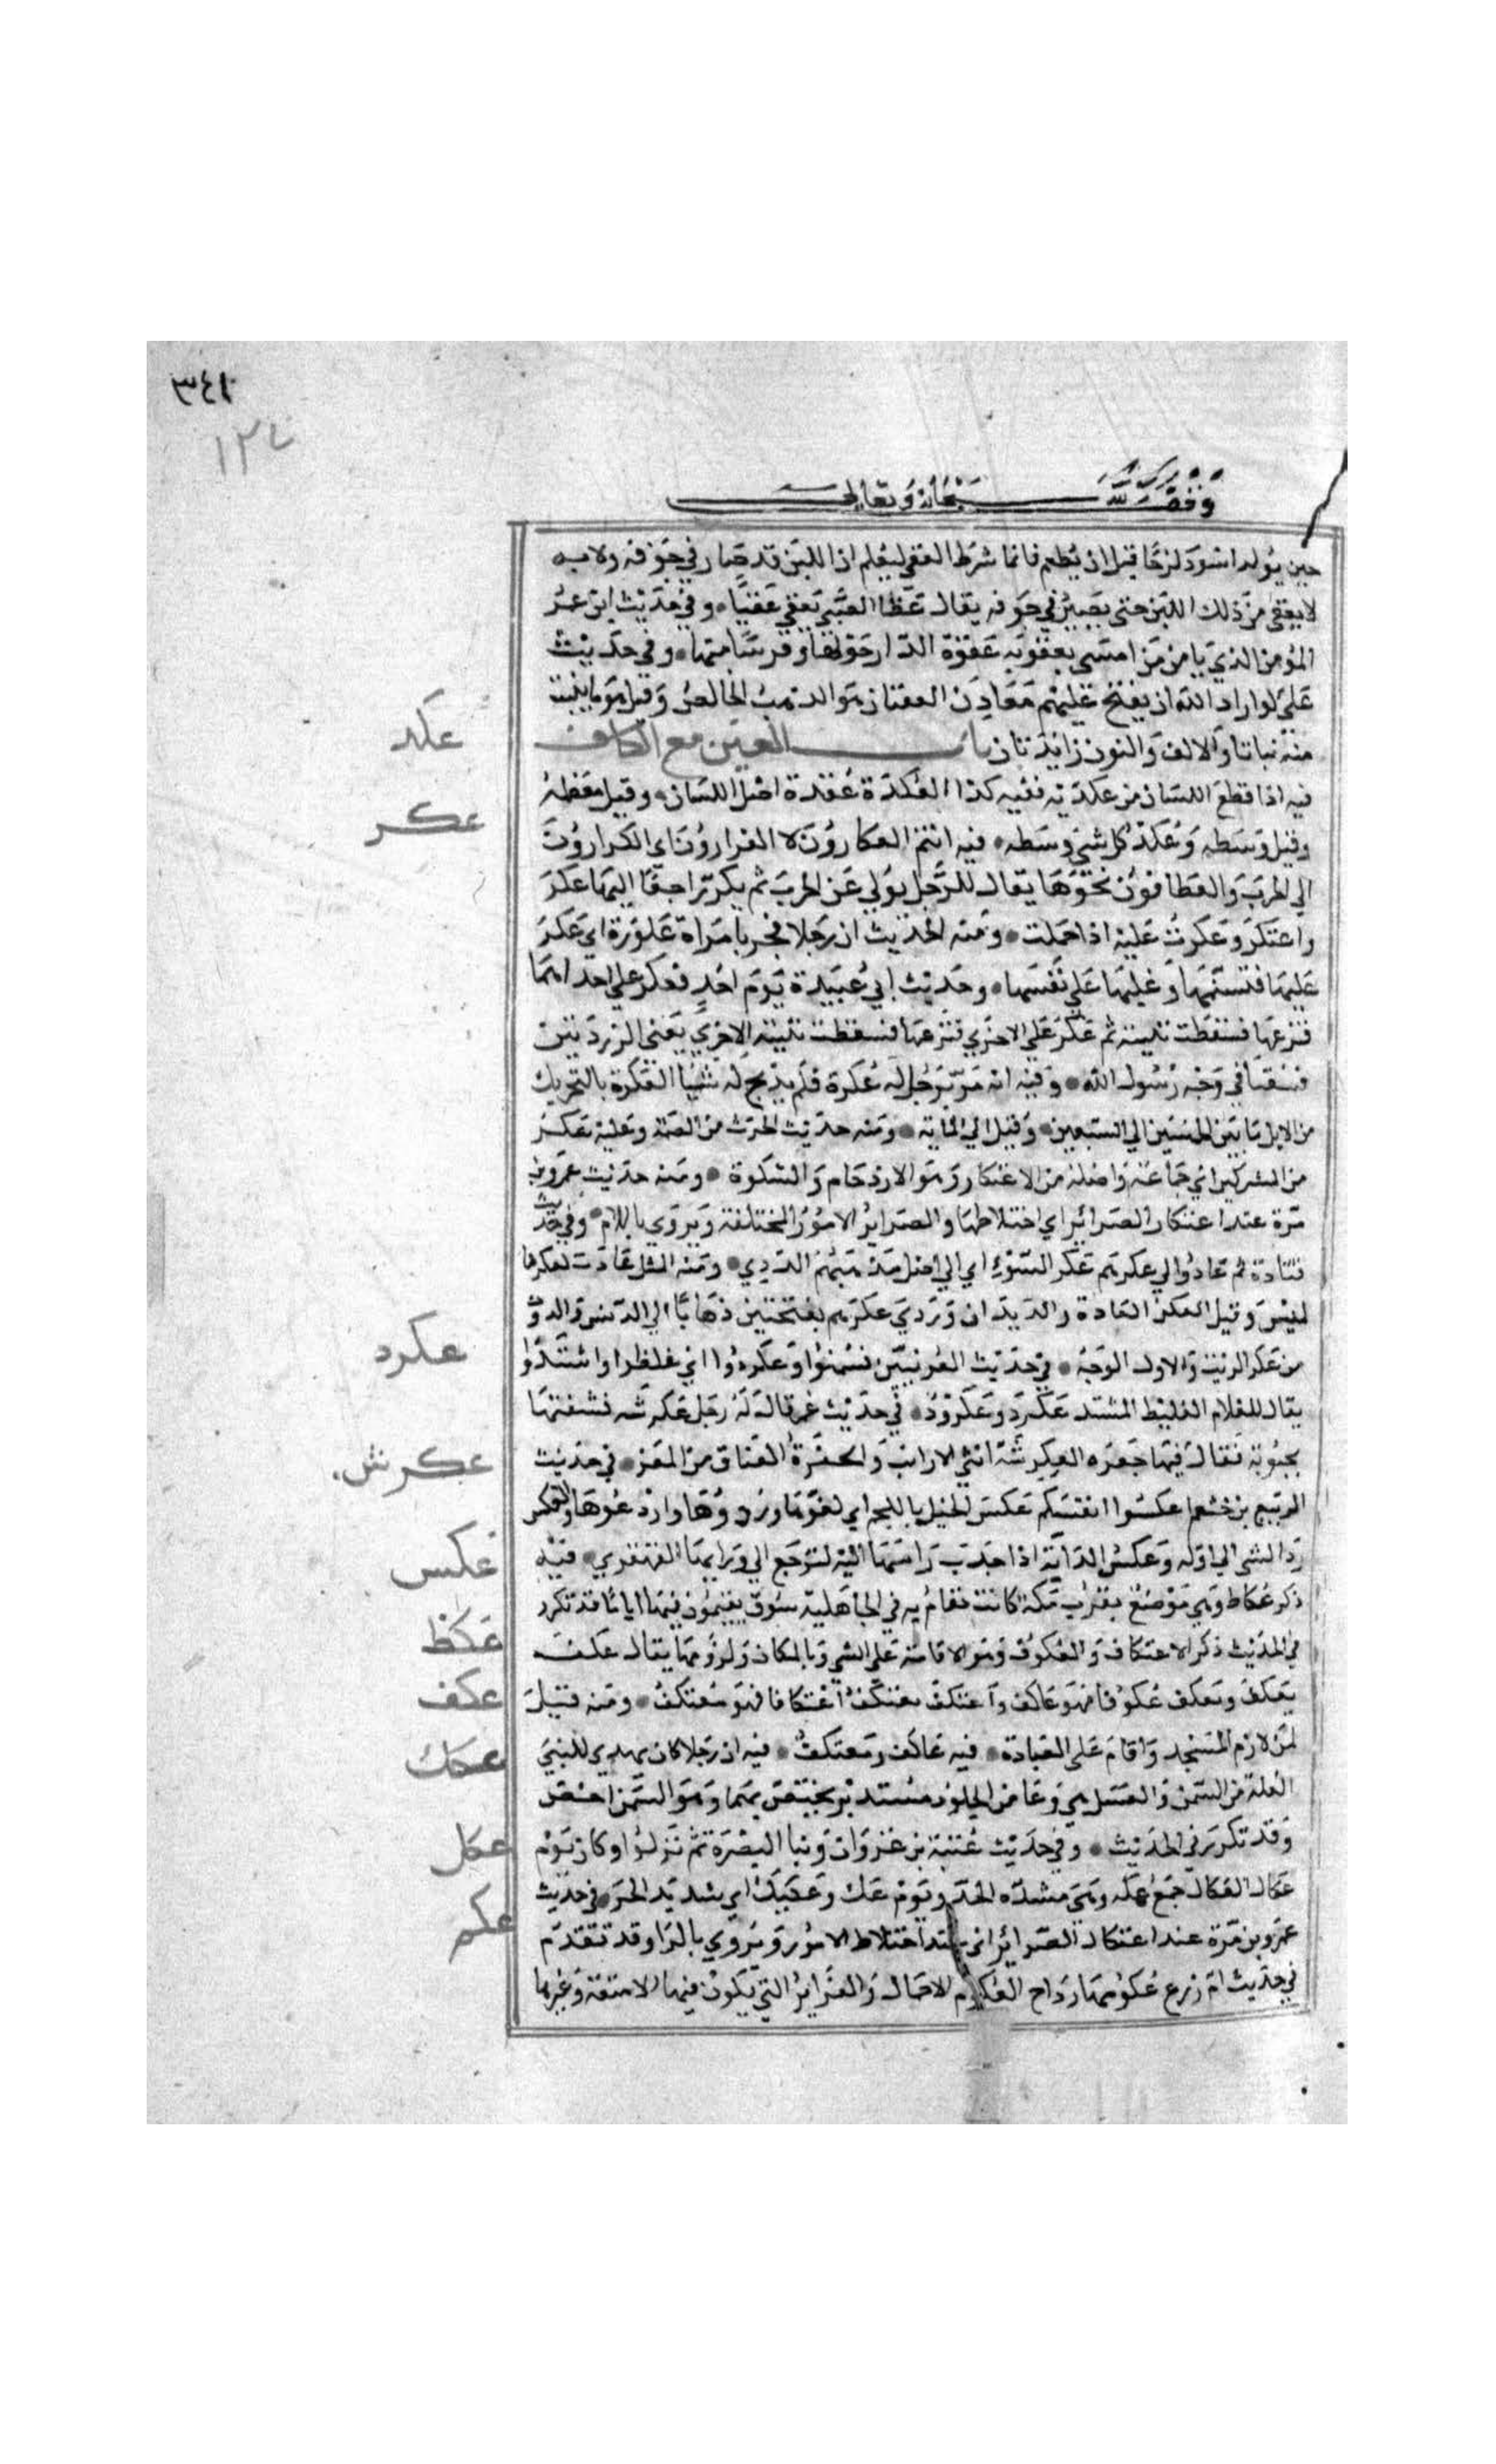 ٣٤١
١٢٧
وقف لله سبحانه وتعالى
حين يولد اسود لزجا قبل ان يطعم فانما شرط العقي ليعلم ان اللبن قد صار في جوفه ولانه
لا يعقي من ذلك اللبن حتى يصير في جوفه يقال عقا الصبي يعقي عقيا وفي حديث ابن عمر
المؤمن الذي يامن من امسى بعقوته عقوة الدار حولها وقربا منها وفي حديث
علي لو اراد الله ان يفتح عليهم معادن العقيان هو الذهب الخالص وقيل هو ما ينبت
منه نباتا والالف والنون زائدتان باب العين مع الكاف
عكد
فيه اذا قطع اللسان من عكدته ففيه كذا العكدة عقدة اصل اللسان وقيل معظمه
عكر
وقيل وسطه وعكد كل شي وسطه فيه انتم العكارون لا الفرارون اي الكرارون
الي الحرب والعطافون نحوها يقال للرجل يولي عن الحرب ثم يكر راجعا اليها عكر
واعتكر وعكرت عليه اذا حملت ومنه الحديث ان رجلا فجر بامراة عكورة اي عكر
عليها فتسنمها وغلبها على نفسها وحديث ابي عبيدة يوم احد فعكر على احداهما
فنزعها فسقطت ثنيته ثم عكر على الاخري فنزعها فسقطت ثنيته الاخري يعني الزردتين
في وجه رسول الله وفيه انه مر برجل له عكرة فلم يذبح له شيا العكرة بالتحريك
من الابل ما بين الخمسين الي السبعين وقيل الي الماية ومنه حديث الحرث من الصمة وعليه عكر
من المشركين اي جماعة واصله من الاعتكار وهو الازدحام والكثرة ومنه حديث عمرو بن
مرة عند اعتكار الضرائر اي اختلاطها والضراير الامور المختلفة ويروي باللام وفي حديث
قتادة ثم عادوا الي عكرهم عكر السوء اي الي اصل مذهبهم الردي ومنه المثل عادت لعكرها
لميس وقيل العكر العادة والديدان وروي عكرهم بفتحتين ذهابا الي الدنس والدرن
عكرد
من عكر الزيت والاول الوجه في حديث العرنيين فسمنوا وعكردوا اي غلظوا واشتدوا
يقال للغلام الغليظ المشتد عكرد وعكرود في حديث عمر قال له رجل عكرشة فشنقتها
عكرش
بجبوبة فقال فيها جفرة العكرشة انثي الارانب والجفرة العناق من المعز في حديث
الربيع بن خثيم اعكسوا انفسكم عكس الخيل باللجم اي كفوها وردوها واردعوها والعكس
عكس
رد الشي الي اوله وعكس الدابة اذا جذب راسها اليه لترجع الي ورايها القهقري فيه
ذكر عكاظ وهي موضع بقرب مكة كانت تقام به في الجاهلية سوق يقيمون فيها اياما قد تكرر
عكظ
في الحديث ذكر الاعتكاف والعكوف وهو الاقامة على الشي وبالمكان ولزومها يقال عكف
عكف
يعكف ويعكف عكوفا فهو عاكف واعتكف يعتكف اعتكافا فهو معتكف ومنه قيل
لمن لازم المسجد واقام على العبادة فيه عاكف ومعتكف فيه ان رجلا كان يهدي للنبي
عكك
العكة من السمن والعسل هي وعا من الجلود مستدير يختص بهما وهو بالسمن اخص
وقد تكرر في الحديث وفي حديث عتبة بن غزوان وبنا البصرة ثم نزلوا وكان يوم
عكل
عكاك العكاك جمع عكة وهي شدة الحر ويوم عك وعكيك اي شديد الحر في حديث
عكم
عمرو بن مرة عند اعتكال الضرائر اي عند اختلاط الامور ويروي بالرا وقد تقدم
في حديث ام زرع عكومها رداح العكوم الاحمال والغراير التي يكون فيها الامتعة وغيرها